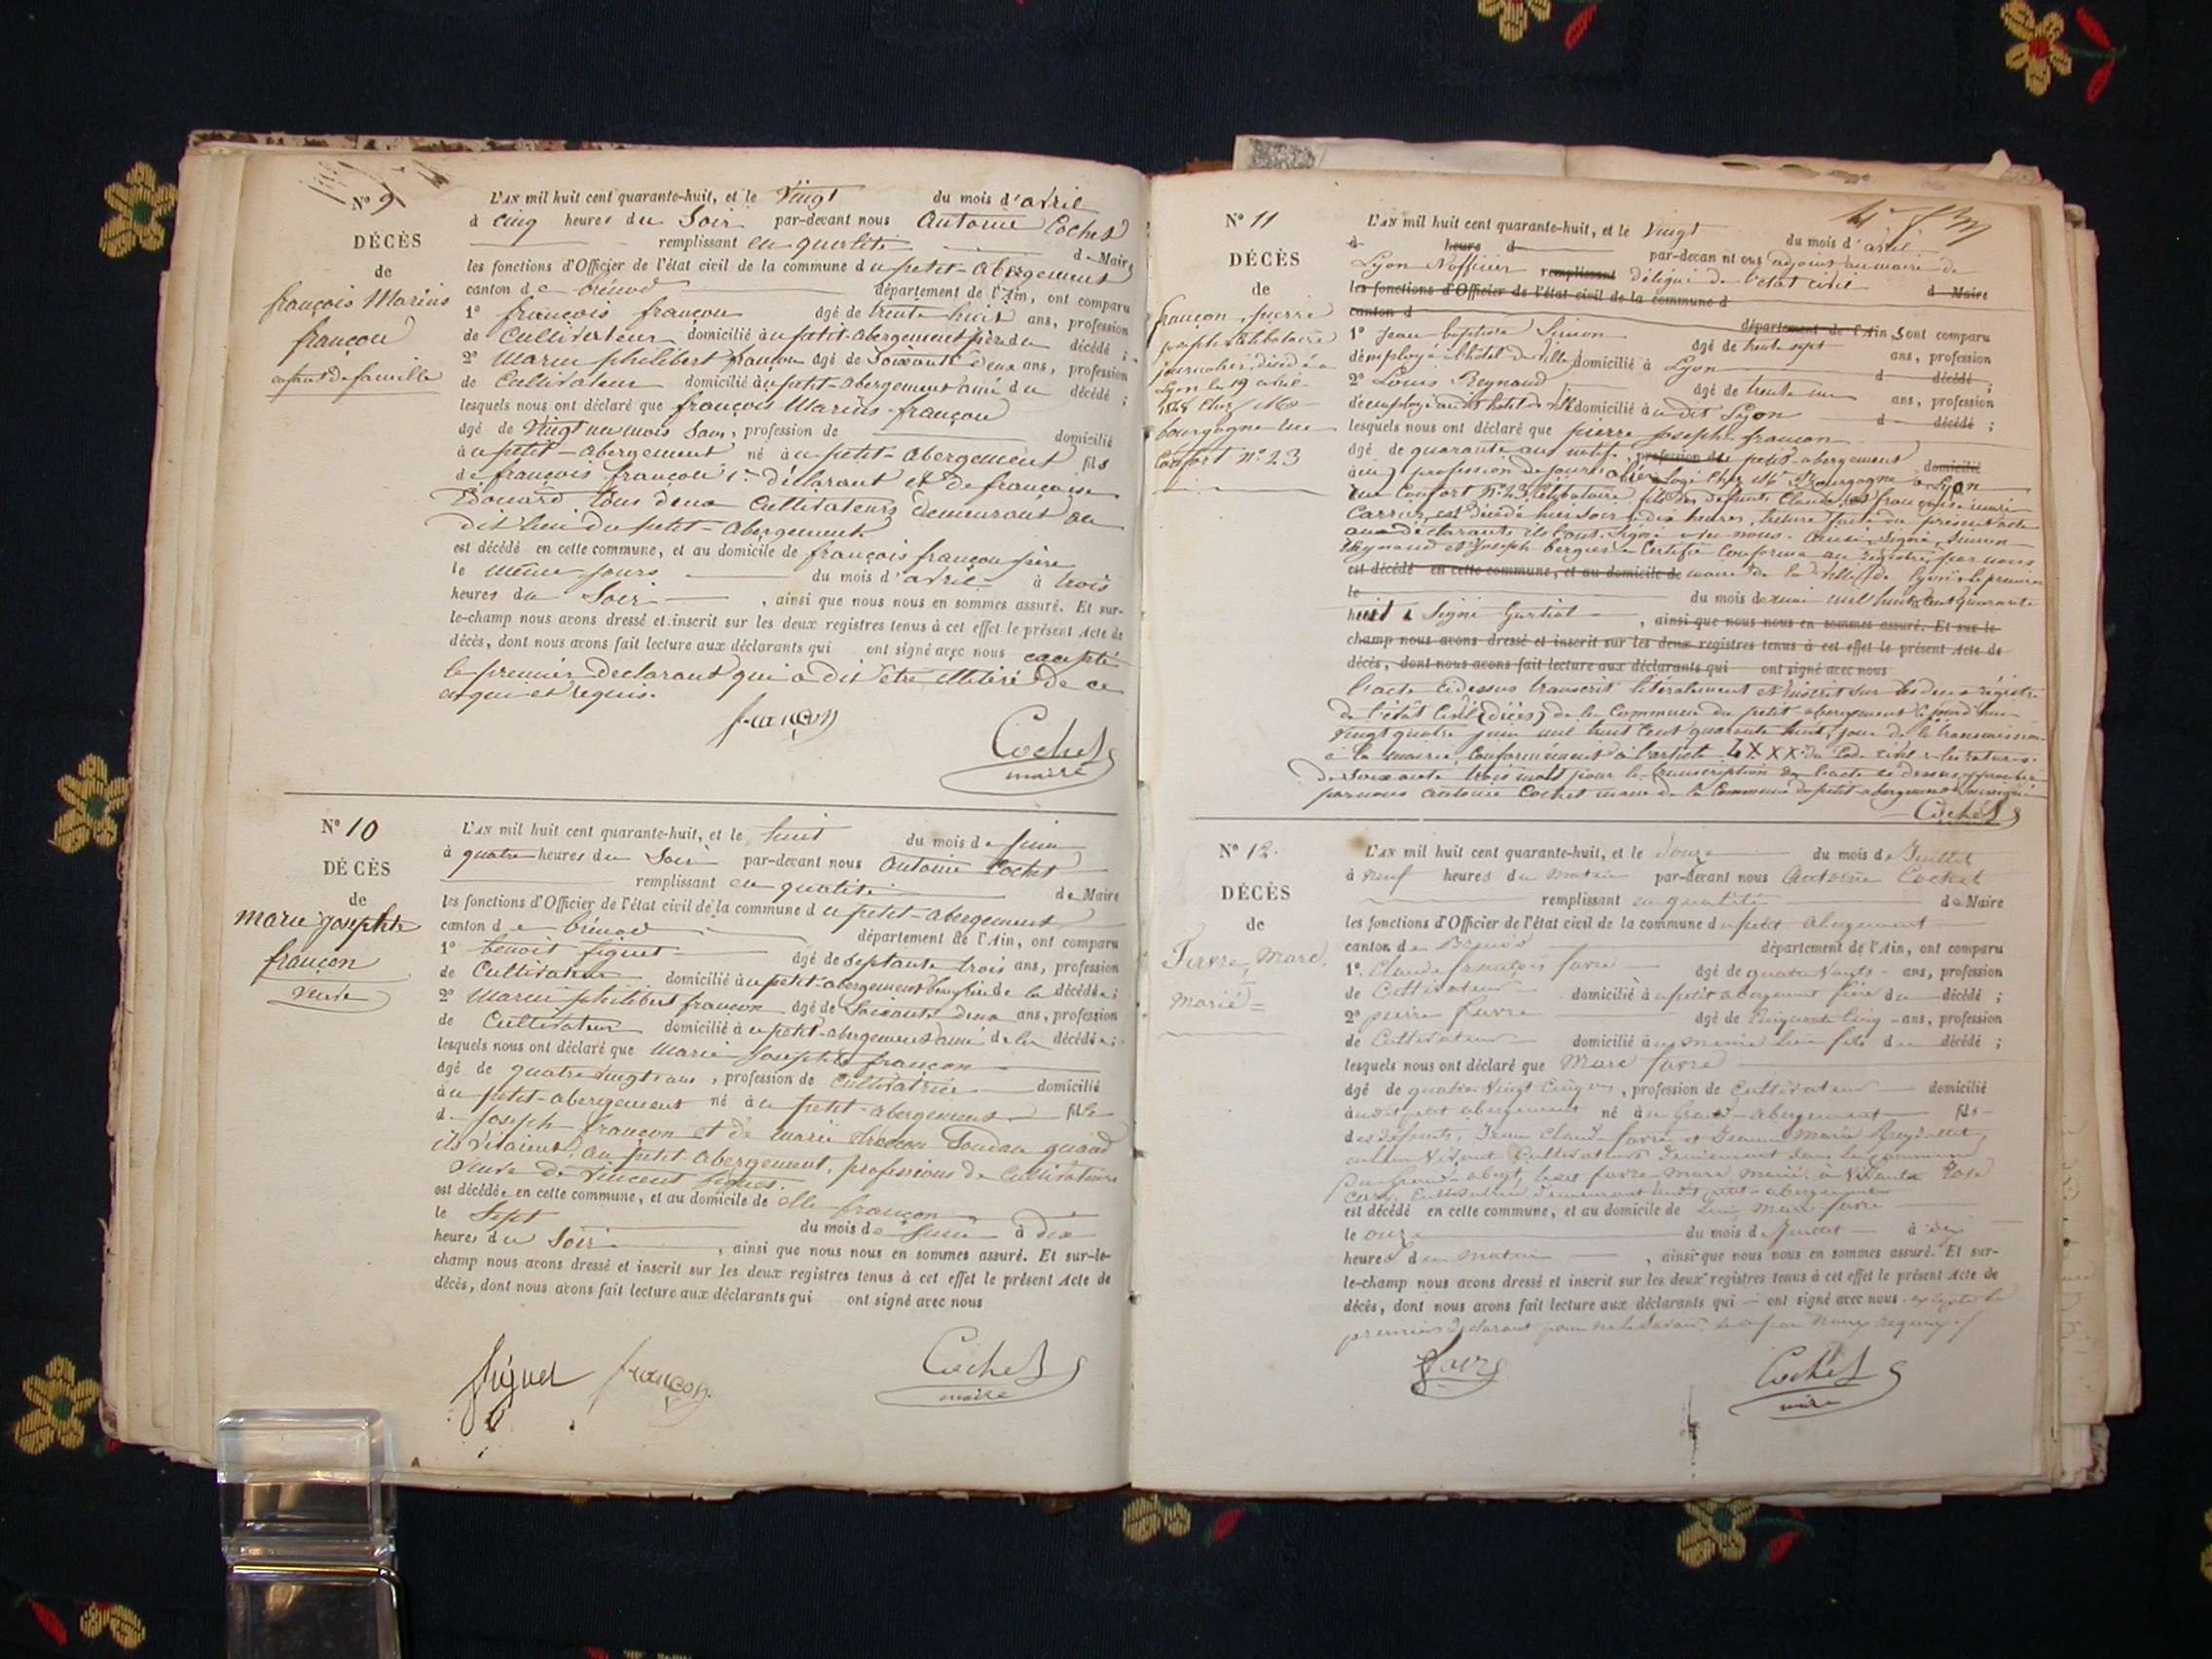 N° 9
DÉCÈS
de
françois Marius
françon
enfant de famille
L'AN mil huit cent quarante-huit, et le Vingt du mois d'avril
à cinq heures du Soir par-devant nous Antoine Cochet
remplissant en qualité de Maire
les fonctions d'Officier de l'état civil de la commune du petit-abergement
canton de brénod département de l'Ain, ont comparu
1° françois françon âgé de trente huit ans, profession
de Cultivateur domicilié au petit-abergement père du décédé ;
2° Marin philibert françon âgé de Soixante deux ans, profession
de Cultivateur domicilié au petit-abergement ami du décédé ;
lesquels nous ont déclaré que françois Marius françon
âgé de Vingt un mois sans, profession de domicilié
au petit-abergement né au petit-abergement fils
de françois françon 1er déclarant et de françoise
Edouard tous deux Cultivateurs demeurant au
dit lieu du petit-abergement
est décédé en cette commune, et au domicile de françois françon père
le même jours du mois d'avril à trois
heures du Soir , ainsi que nous nous en sommes assuré. Et sur-
le-champ nous avons dressé et inscrit sur les deux registres tenus à cet effet le présent Acte de
décès, dont nous avons fait lecture aux déclarants qui ont signé avec nous excepté
le premier declarant qui a dit être illitéré de ce
enqui et requis.
françon
Cochet
maire
N° 10
DÉCÈS
de
marie josephte
françon
veuve
L'AN mil huit cent quarante-huit, et le huit du mois de juin
à quatre heures du Soir par-devant nous Antoine Cochet
remplissant en qualité de Maire
les fonctions d'Officier de l'état civil de la commune du petit-abergement
canton de brénod département de l'Ain, ont comparu
1° benoit figuet âgé de Septante trois ans, profession
de Cultivateur domicilié au petit-abergement beaufrère de la décédée ;
2° Marin philibert françon âgé de Soixante deux ans, profession
de Cultivateur domicilié au petit-abergement ami de la décédée ;
lesquels nous ont déclaré que Marie Josephte françon
âgé de quatre vingts ans, profession de cultivatrice domicilié
au petit-abergement né au petit-abergement fille
de joseph françon et de marie Soudan quand
ils vivaient au petit-abergement, professions de cultivateurs
veuve de Vincent figuet.
est décédée en cette commune, et au domicile de elle françon
le Sept du mois de juin à dix
heures du Soir , ainsi que nous nous en sommes assuré. Et sur-le-
champ nous avons dressé et inscrit sur les deux registres tenus à cet effet le présent Acte de
décès, dont nous avons fait lecture aux déclarants qui ont signé avec nous
figuet françon
Cochet
maire
N° 11
DÉCÈS
de
françon pierre
joseph célibataire
journalier décédé à
Lyon le 19 avril
1848 chez Mr
bourgogne rue
Confort n° 23
L'AN mil huit cent quarante-huit, et le vingt du mois d'avril
à heure d par-devant nous adjoint au maire de
Lyon l'officier remplissant délégué de l'état civil d Maire
les fonctions d'Officier de l'état civil de la commune d
canton d département de l'Ain, Sont comparu
1° Jean baptiste Simon âgé de trente sept ans, profession
d'employé à l'hôtel de ville domicilié à Lyon d décédé ;
2° Louis Reynaud âgé de trente un ans, profession
d'employé audit hôtel de ville domicilié au dit Lyon d décédé ;
lesquels nous ont déclaré que pierre joseph françon
âgé de quarante neuf, profession de petit-abergement domicilié
(ain) profession de journalier logé chez Mr Bourgogne à Lyon
rue Confort n° 23, célibataire fils des défunts Claude et françoise marie
Carrier, est décédé hier soir à dix heures, lecture faite du présent acte
aux déclarants ils l'ont signé avec nous. ainsi signé, Simon
Reynaud et Joseph bergier. Certifié conforme au registre par nous
est décédé en cette commune, et au domicile de maire de la ville de lyon le premier
le du mois de mai mil huit cent quarante
huit Signé , ainsi que nous nous en sommes assuré. Et sur-le-
champ nous avons dressé et inscrit sur les deux registres tenus à cet effet le présent Acte de
décès, dont nous avons fait lecture aux déclarants qui ont signé avec nous
l'acte cidessus transcrit litéralement et inscrit sur les deux régistre
de l'état civil (décès) de la Commune du petit-abergement ce jourd'hui
vingt quatre juin mil huit cent quarante huit, jour de la transmission
à la mairie, conformément à l'article LXXX du Code civil les ratures
de soixante trois mots pour la transcription de l'acte ci dessus approuvé
par nous antoine Cochet maire de la Commune du petit-abergement soussigné
Cochet
N° 12
DÉCÈS
de
Favre, Marc
Marié
L'AN mil huit cent quarante-huit, et le douze du mois de Juillet
à neuf heures du matin par-devant nous Antoine Cochet
remplissant en qualité de Maire
les fonctions d'Officier de l'état civil de la commune du petit-abergement
canton de Brénod département de l'Ain, ont comparu
1° Claude françois favre âgé de quatre Vingts ans, profession
de Cultivateur domicilié au petit abergement frère du décédé ;
2° pierre favre âgé de Cinquante Cinq ans, profession
de Cultivateur domicilié au même lieu fils du décédé ;
lesquels nous ont déclaré que Marc favre
âgé de quatre Vingt Cinq ans, profession de Cultivateur domicilié
audit petit abergement né au Grand-abergement fils
des défunts, Jean Claude favre et Jeanne Marie Reydellet,
Cultivateurs demeurant dans la Commune
du Grand-abergt, favre marc marié à Rose
Cultivateur demeurant audit petit-abergement
est décédé en cette commune, et au domicile de lui, Marc favre
le onze du mois de Juillet à dix
heures du matin , ainsi que nous nous en sommes assuré. Et sur-
le-champ nous avons dressé et inscrit sur les deux registres tenus à cet effet le présent Acte de
décès, dont nous avons fait lecture aux déclarants qui ont signé avec nous excepté le
premier déclarant pour ne le savoir de ce par nous requis
favre
Cochet
maire